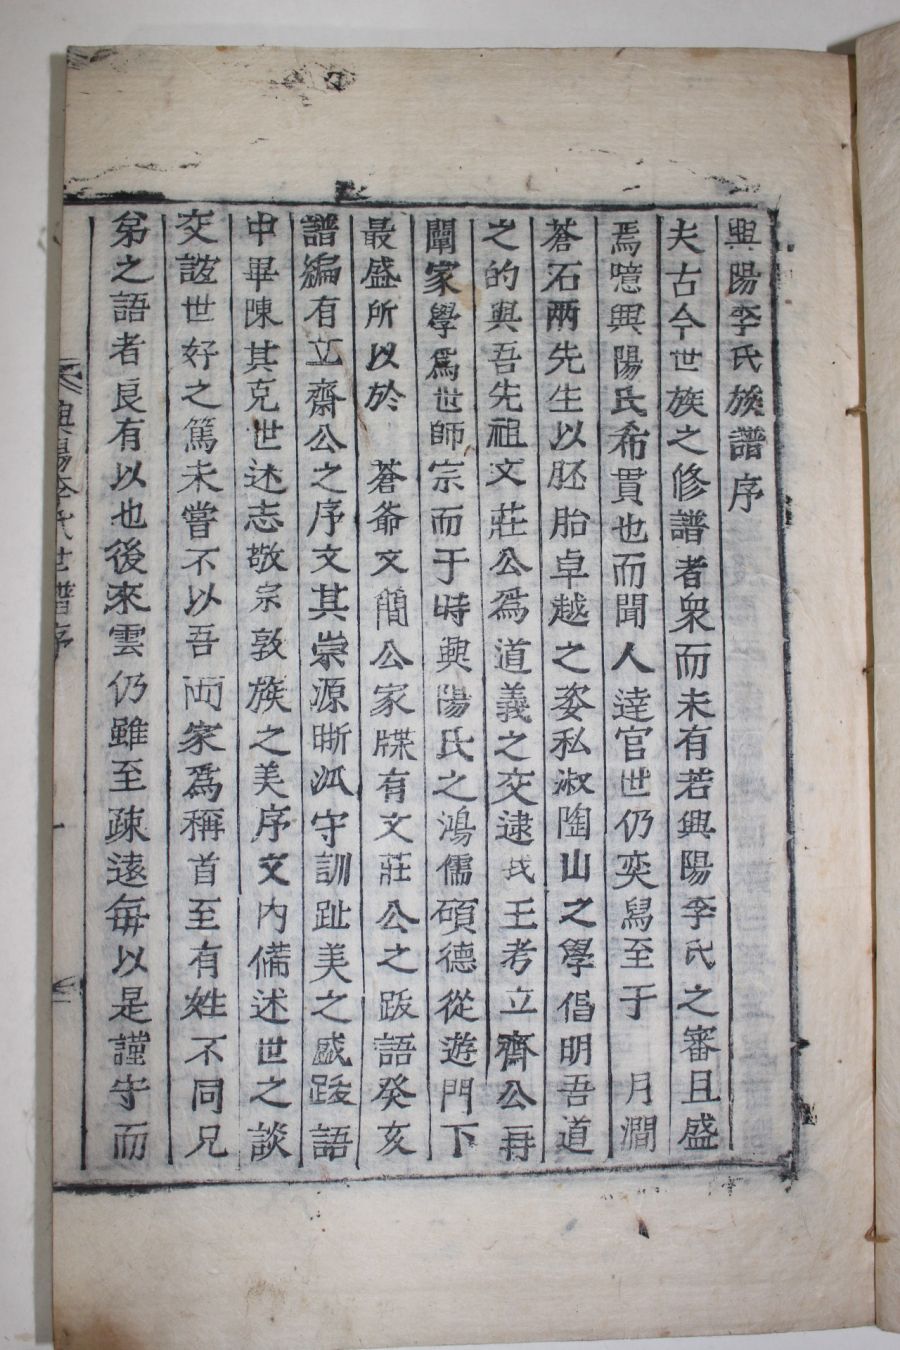 興陽李氏族譜序
夫古今世族之修譜者衆而未有若興陽李氏之審且盛
焉噫興陽氏希貫也而聞人達官世仍奕舃至于　月澗
蒼石兩先生以胚胎卓越之姿私淑陶山之學倡明吾道
之的與吾先祖文莊公爲道義之交逮我王考立齋公再
闡家學爲世師宗而于時興陽氏之鴻儒碩德從遊門下
最盛所以於　蒼爺文簡公家牒有文莊公之跋語癸亥
譜編有立齋公之序文其崇源晣泒守訓趾美之感跋語
中畢陳其克世述志敬宗敦族之美序文內備述世之談
交誼世好之篤未嘗不以吾兩家爲稱首至有姓不同兄
弟之語者良有以也後來雲仍雖至疎遠每以是謹守而
興陽李氏世譜序